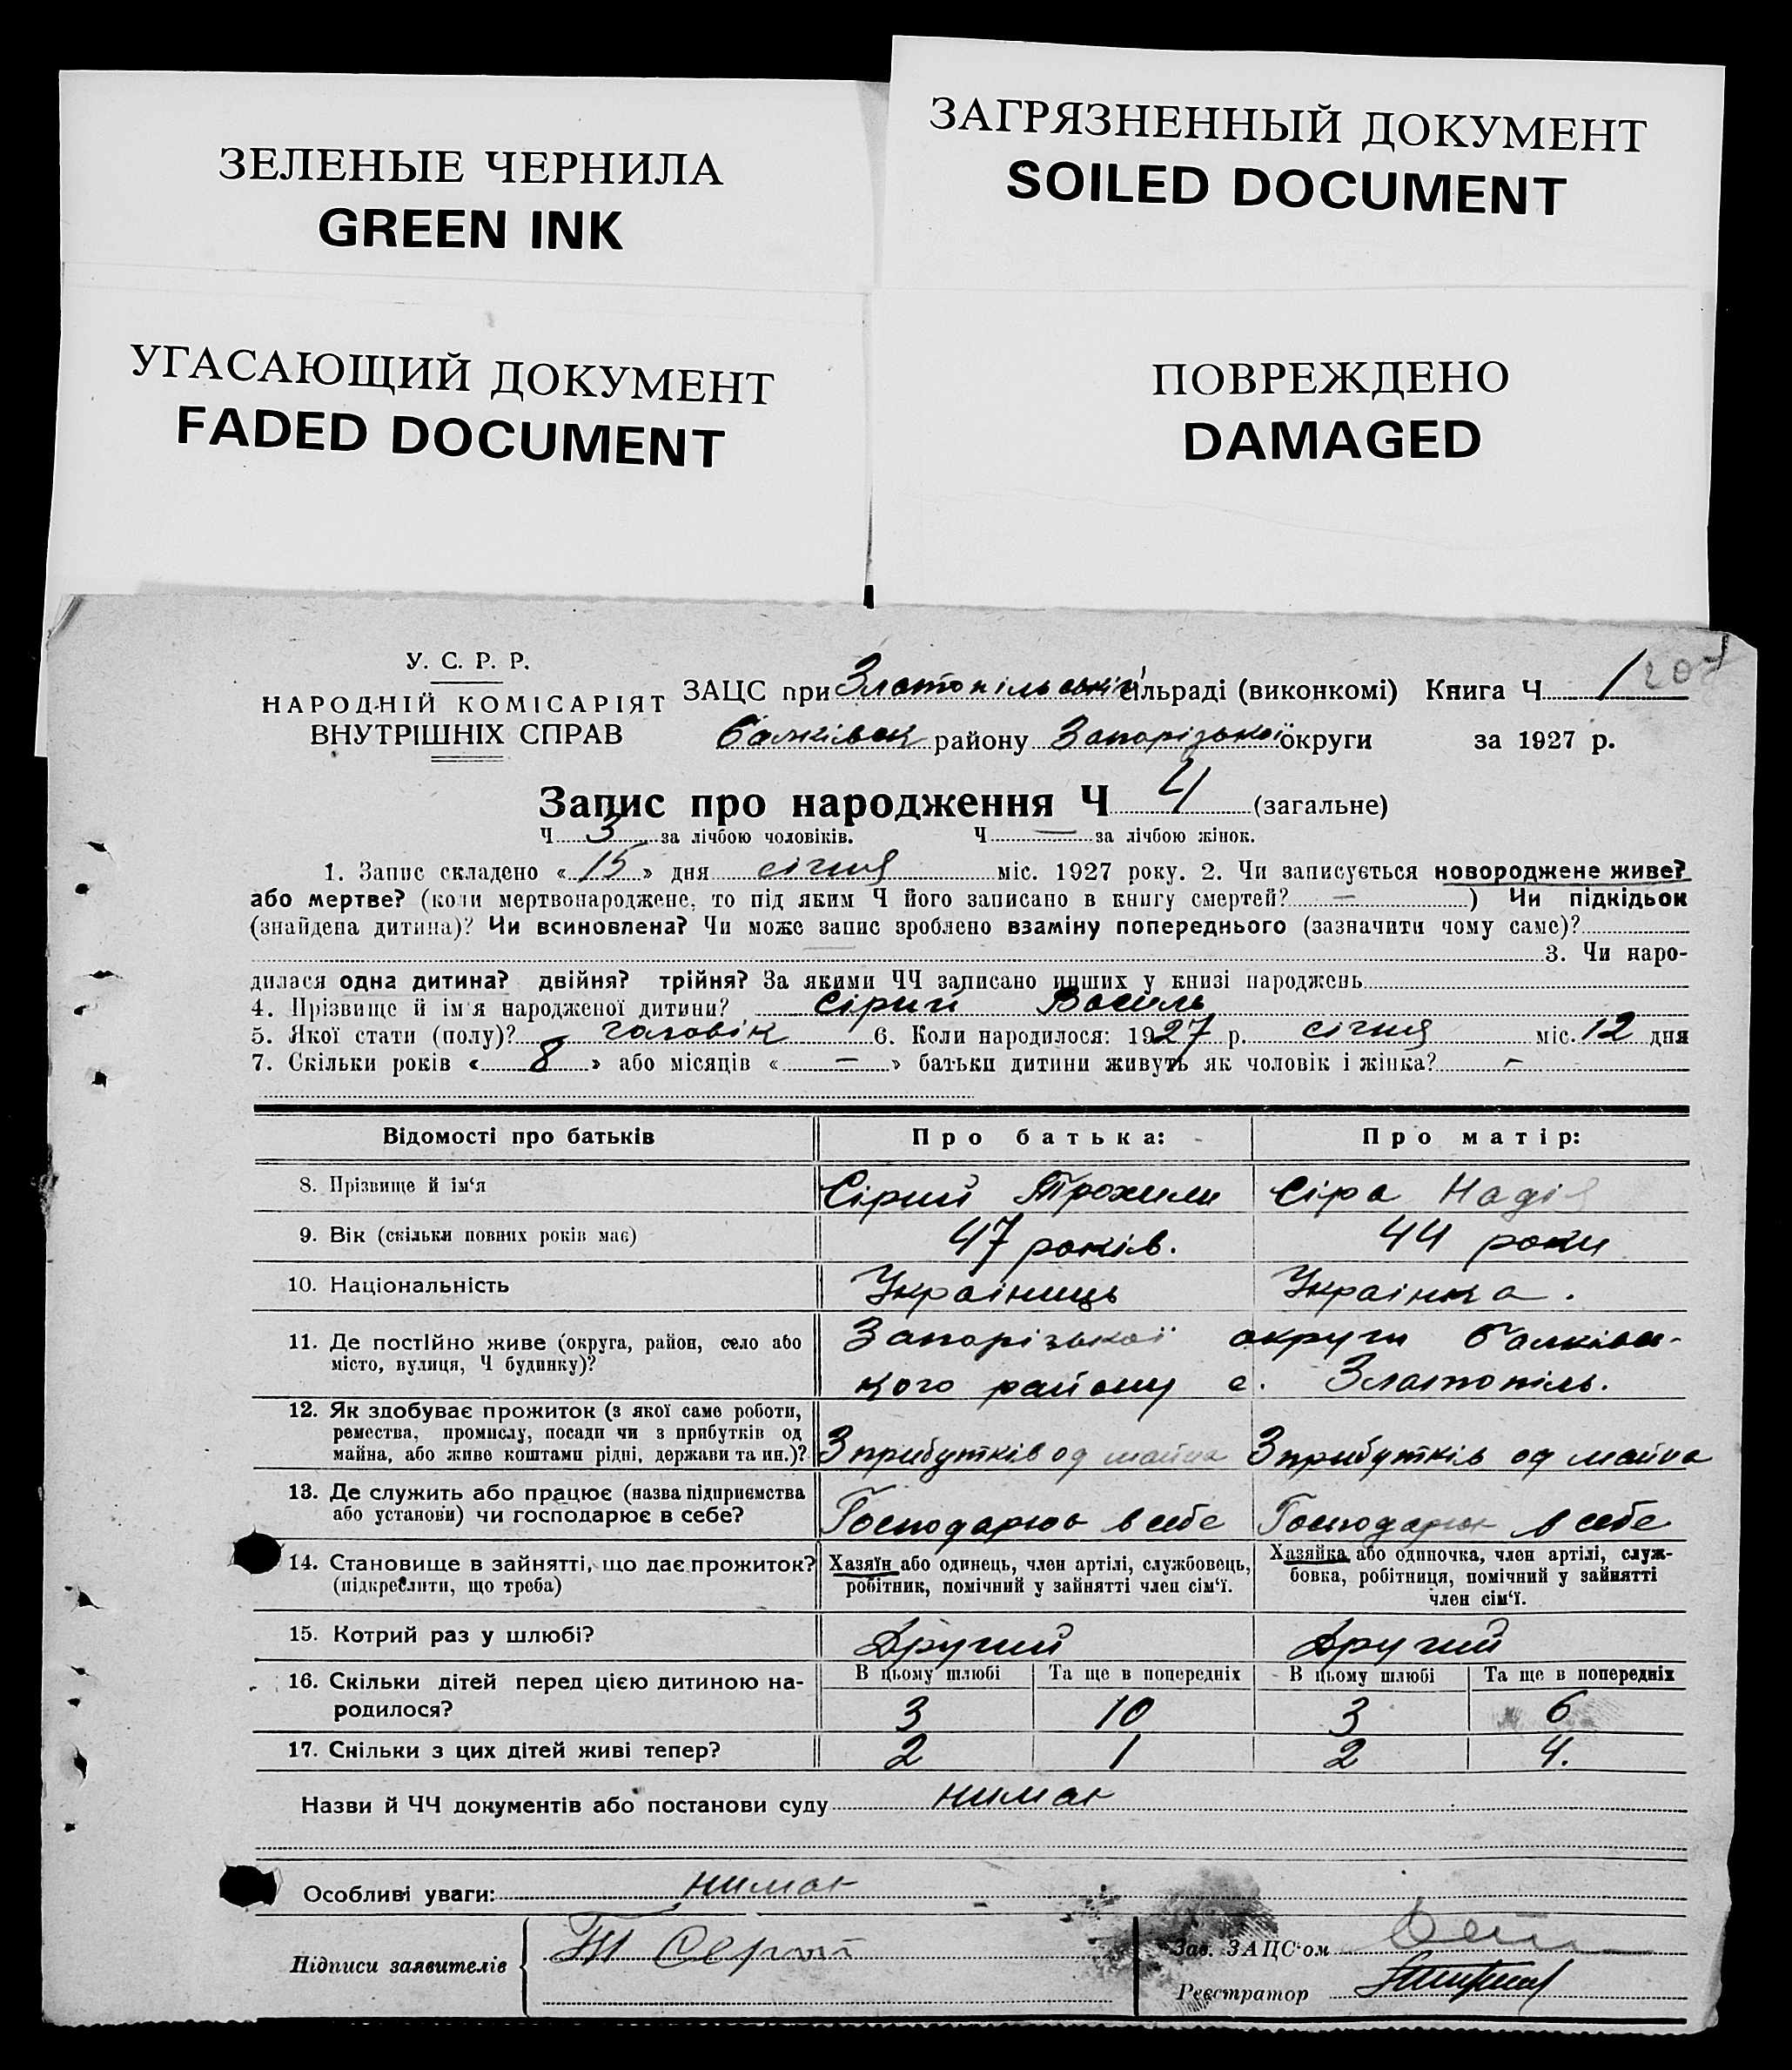 ЗЕЛЕНЫЕ ЧЕРНИЛА
GREEN INK
ЗАГРЯЗНЕННЫЙ ДОКУМЕНТ
SOILED DOCUMENT
УГАСАЮЩИЙ ДОКУМЕНТ
FADED DOCUMENT
ПОВРЕЖДЕНО
DAMAGED
У. С. Р. Р.
НАРОДНІЙ КОМІСАРІЯТ
ВНУТРІШНІХ СПРАВ
ЗАЦС при Златопільській сільраді (виконкомі) Книга Ч 1 207
району Запорізької округи за 1927 р.
Запис про народження Ч 4 (загальне)
Ч 3 за лічбою чоловіків. Ч — за лічбою жінок.
1. Запис складено «15» дня січня міс. 1927 року. 2. Чи записується новороджене живе?
або мертве? (коли мертвонароджене, то під яким Ч його записано в книгу смертей? — ) Чи підкідьок
(знайдена дитина)? Чи всиновлена? Чи може запис зроблено взаміну попереднього (зазначити чому саме)?
3. Чи наро-
дилася одна дитина? двійня? трійня? За якими ЧЧ записано инших у книзі народжень
4. Прізвище й ім'я народженої дитини? Сірий Василь
5. Якої стати (полу)? чоловік 6. Коли народилося: 1927 р. січня міс. 12 дня
7. Скільки років «8» або місяців «—» батьки дитини живуть як чоловік і жінка? —
Відомості про батьків Про батька: Про матір:
8. Прізвище й ім'я Сірий Трохим Сіра Надія
9. Вік (скільки повних років має) 47 років. 44 роки
10. Національність Україниць Українка.
11. Де постійно живе (округа, район, село або Запорізької округи Балківсь-
місто, вулиця, Ч будинку)? кого району с. Златопіль.
12. Як здобуває прожиток (з якої саме роботи,
ремества, промислу, посади чи з прибутків од
майна, або живе коштами рідні, держави та ин.)? З прибутків од майна З прибутків од майна
13. Де служить або працює (назва підприємства
або установи) чи господарює в себе? Господарює в себе Господарює в себе
14. Становище в зайнятті, що дає прожиток? Хазяїн або одинець, член артілі, службовець, Хазяйка або одиночка, член артілі, служ-
(підкреслити, що треба) робітник, помічний у зайнятті член сім'ї. бовка, робітниця, помічний у зайнятті
член сім'ї.
15. Котрий раз у шлюбі? Другий Другий
16. Скільки дітей перед цією дитиною на- В цьому шлюбі Та ще в попередніх В цьому шлюбі Та ще в попередніх
родилося? 3 10 3 6
17. Скільки з цих дітей живі тепер? 2 1 2 4.
Назви й ЧЧ документів або постанови суду нимає
Особливі уваги: нимає
Підписи заявителів
Зав. ЗАЦС'ом
Реєстратор